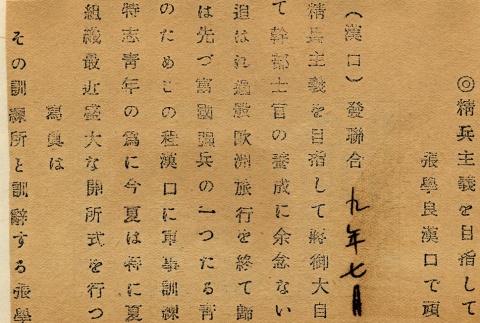 ◎精兵主義を目指して
張學良漢口で頑
（漢口）發聯合 九年七月
精兵主義を目指して蔣御大自
て幹部士官の養成に余念ない
追はれ過般歐洲旅行を終て歸
は先づ富國强兵の一つたる靑
のためこの程漢口に軍事訓練
特志靑年の爲に今夏は特に夏
組織最近盛大な開所式を行つ
寫眞は
その訓練所と訓辭する張學